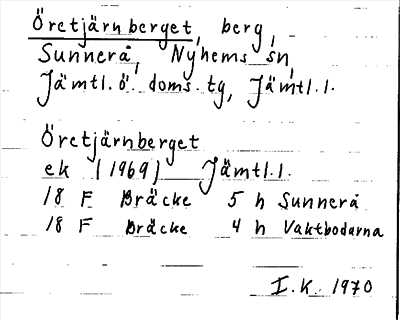 Öretjärnberget, berg,
Sunnerå, Nyhems sn,
Jämtl.ö. doms.tg, Jämtl.l.
Öretjärnberget
ek (1969) Jämtl.l.
18 F Bräcke 5 h Sunnerå
18 F Bräcke 4 h Vaktbodarna
I.K. 1970